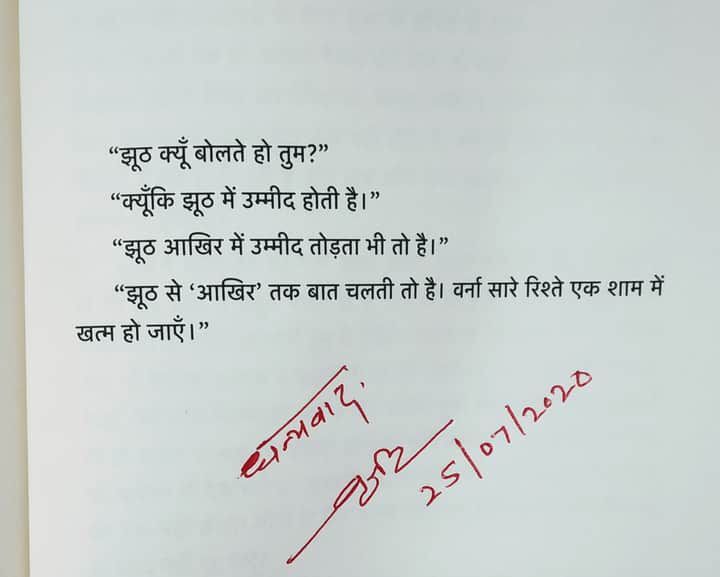 “झूठ क्यूँ बोलते हो तुम?”
“क्यूँकि झूठ में उम्मीद होती है।”
“झूठ आखिर में उम्मीद तोड़ता भी तो है।”
“झूठ से ‘आखिर’ तक बात चलती तो है। वर्ना सारे रिश्ते एक शाम में
खत्म हो जाएँ।”
धन्यवाद.
25/07/2020